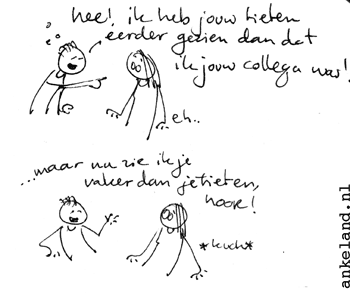 hee! ik heb jouw tieten
eerder gezien dan dat
ik jouw collega was!
eh..
...maar nu zie ik je
vaker dan je tieten,
hoor!
*kuch*
ankeland.nl